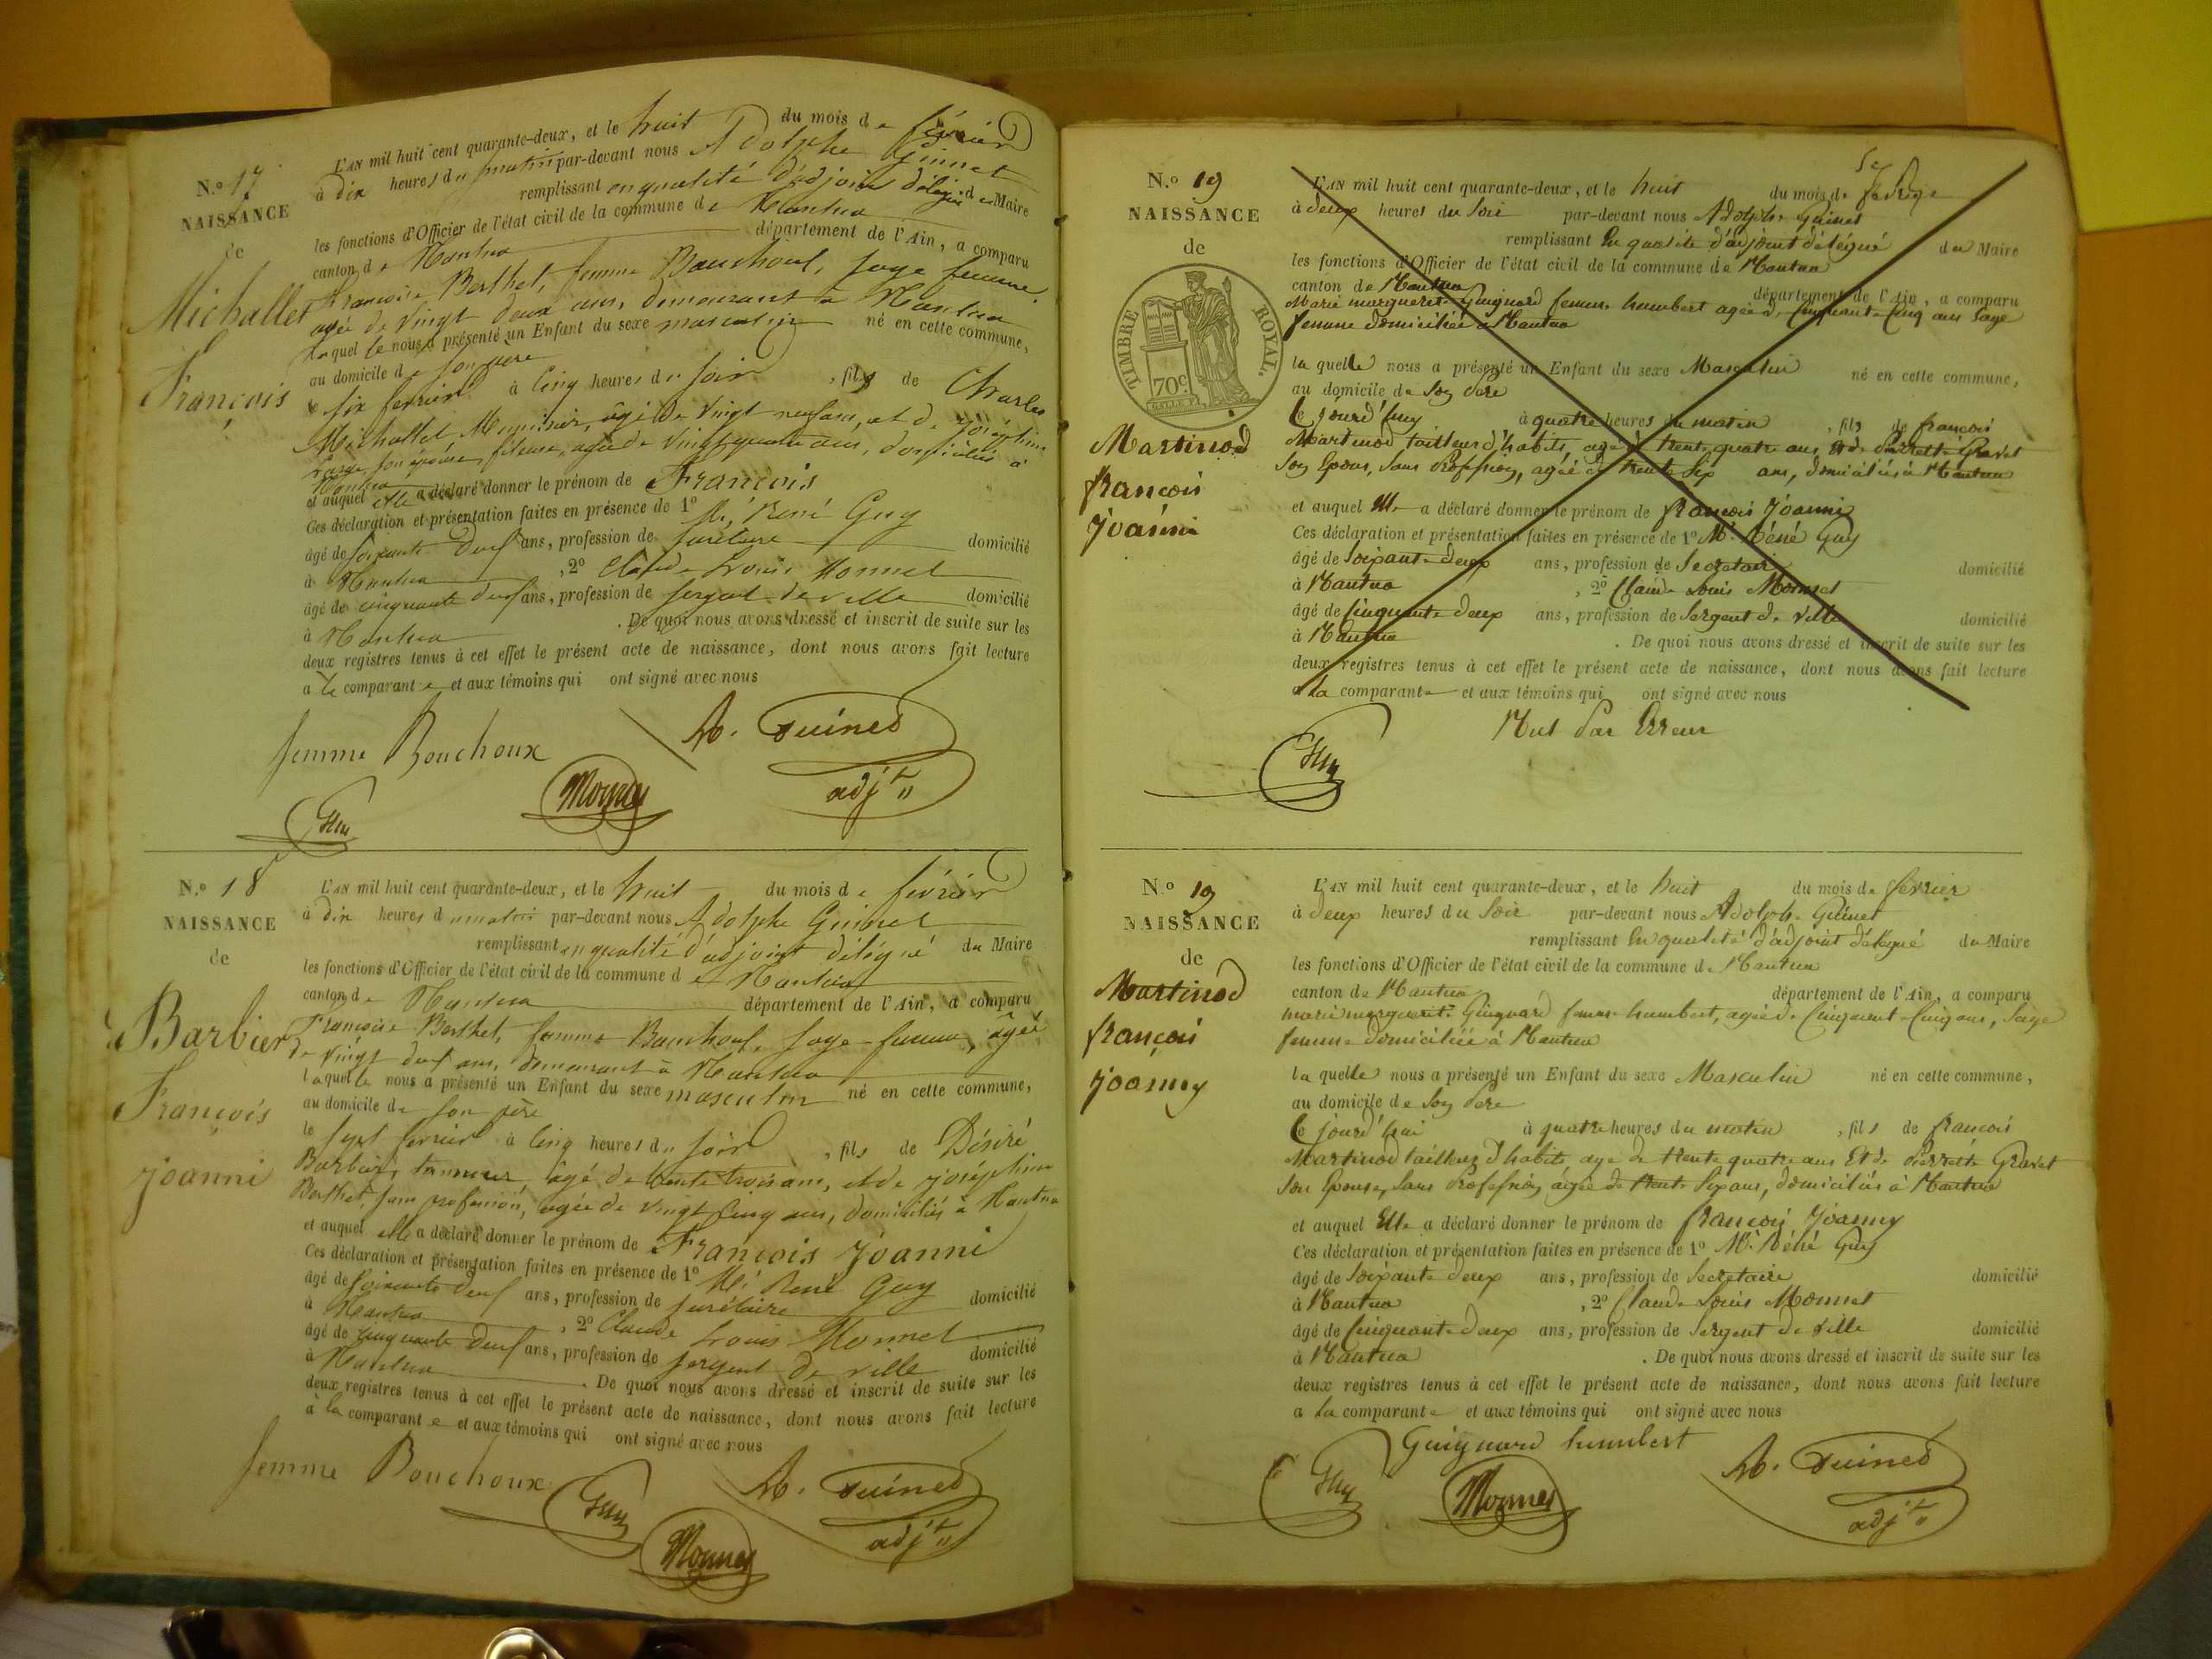 N.° 17
NAISSANCE
de
Michallet
François
L'AN mil huit cent quarante-deux, et le huit du mois de février
à dix heures du matin par-devant nous Adolphe Guinet
remplissant en qualité d'adjoint délégué du Maire
les fonctions d'Officier de l'état civil de la commune de Nantua
canton de Nantua département de l'Ain, a comparu
Françoise Berthet, femme Bouchoux, sage femme,
agée de vingt deux ans, demeurant à Nantua
laquelle nous a présenté un Enfant du sexe masculin né en cette commune,
au domicile de son père
le six février à cinq heures du soir, fils de Charles
Michallet, Menuisier, âgé de vingt neuf ans, et de Joséphine
son épouse, fileuse, agée de vingt quatre ans, domiciliés à
Nantua
et auquel elle a déclaré donner le prénom de François
Ces déclaration et présentation faites en présence de 1° Mr. René Guy
âgé de soixante deux ans, profession de secrétaire domicilié
à Nantua, 2° Claude Louis Monnet
âgé de cinquante deux ans, profession de sergent de ville domicilié
à Nantua. De quoi nous avons dressé et inscrit de suite sur les
deux registres tenus à cet effet le présent acte de naissance, dont nous avons fait lecture
à la comparante et aux témoins qui ont signé avec nous
femme Bouchoux
A. Guinet
adjt
Monnet
Guy
N.° 18
NAISSANCE
de
Barbier
François
Joanni
L'AN mil huit cent quarante-deux, et le huit du mois de février
à dix heures du matin par-devant nous Adolphe Guinet
remplissant en qualité d'adjoint délégué du Maire
les fonctions d'Officier de l'état civil de la commune de Nantua
canton de Nantua département de l'Ain, a comparu
Françoise Berthet, femme Bouchoux, sage-femme, âgée
de vingt deux ans, demeurant à Nantua
laquelle nous a présenté un Enfant du sexe masculin né en cette commune,
au domicile de son père
le sept février à cinq heures du soir, fils de Désiré
Barbier, tanneur, âgé de trente trois ans, et de Joséphine
Berthet, sans profession, agée de vingt cinq ans, domiciliés à Nantua
et auquel elle a déclaré donner le prénom de François Joanni
Ces déclaration et présentation faites en présence de 1° Mr René Guy
âgé de soixante deux ans, profession de secrétaire domicilié
à Nantua, 2° Claude Louis Monnet
âgé de cinquante deux ans, profession de sergent de ville domicilié
à Nantua. De quoi nous avons dressé et inscrit de suite sur les
deux registres tenus à cet effet le présent acte de naissance, dont nous avons fait lecture
à la comparante et aux témoins qui ont signé avec nous
femme Bouchoux
Guy
A. Guinet
adjt
Monnet
N.° 19
NAISSANCE
de
TIMBRE ROYAL.
70c.
Martinod
françois
Joanni
L'AN mil huit cent quarante-deux, et le huit du mois de fevrier
à deux heures du soir par-devant nous Adolphe Guinet
remplissant En qualité d'adjoint délégué du Maire
les fonctions d'Officier de l'état civil de la commune de Nantua
canton de Nantua département de l'Ain, a comparu
Marie marguerite Guignard femme humbert agée de Cinquante Cinq ans Sage
femme domiciliée à Nantua
laquelle nous a présenté un Enfant du sexe Masculin né en cette commune,
au domicile de son Père
le jourd'huy à quatre heures du matin, fils de françois
Martinod tailleur d'habits, agé de trente quatre ans Et de Pierrette Gravet
Son Epouse, Sans Proffession, agée de trente Six ans, domiciliés à Nantua
et auquel Elle a déclaré donner le prénom de françois Joanni
Ces déclaration et présentation faites en présence de 1° Mr. Réné Guy
âgé de Soixante deux ans, profession de Secretaire domicilié
à Nantua, 2° Claude Louis Monnet
âgé de Cinquante deux ans, profession de Sergent de Ville domicilié
à Nantua. De quoi nous avons dressé et inscrit de suite sur les
deux registres tenus à cet effet le présent acte de naissance, dont nous avons fait lecture
a la comparante et aux témoins qui ont signé avec nous
Nul Par Erreur
Guy
N.° 19
NAISSANCE
de
Martinod
françois
Joanny
L'AN mil huit cent quarante-deux, et le huit du mois de fevrier
à deux heures du Soir par-devant nous Adolphe Guinet
remplissant En qualité d'adjoint délégué du Maire
les fonctions d'Officier de l'état civil de la commune de Nantua
canton de Nantua département de l'Ain, a comparu
marie marguerite Guignard femme humbert, agée de Cinquante Cinq ans, Sage
femme domiciliée à Nantua
laquelle nous a présenté un Enfant du sexe Masculin né en cette commune,
au domicile de Son Père
le jourd'hui à quatre heures du matin, fils de françois
Martinod tailleur d'habits agé de trente quatre ans Et de Pierrette Gravet
Son Epouse, Sans Profession, agée de trente Six ans, domiciliés à Nantua
et auquel Elle a déclaré donner le prénom de françois Joanny
Ces déclaration et présentation faites en présence de 1° Mr. Réné Guy
âgé de Soixante deux ans, profession de Secretaire domicilié
à Nantua, 2° Claude Louis Monnet
âgé de Cinquante deux ans, profession de Sergent de Ville domicilié
à Nantua. De quoi nous avons dressé et inscrit de suite sur les
deux registres tenus à cet effet le présent acte de naissance, dont nous avons fait lecture
a la comparante et aux témoins qui ont signé avec nous
Guignard humbert
Guy
Monnet
A. Guinet
adjt